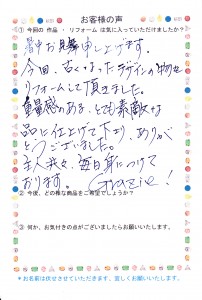 お客様の声
① 今回の 作品 ・ リフォーム は気に入っていただけましたか?
暑中お見舞申し上げます。
今回、古くなったデザインの
リフォームして頂きました。
重量感のある、とても素敵な
品に仕上げて下さり、ありがとうございました。
主人共々、毎日身につけて
おります。 grazie!
② 今後、どの様な商品をご希望でしょうか?
③ 何か、お気付きの点がございましたらお願いいたします。
*お名前は伏せさせていただきます、宜しくお願いいたします。